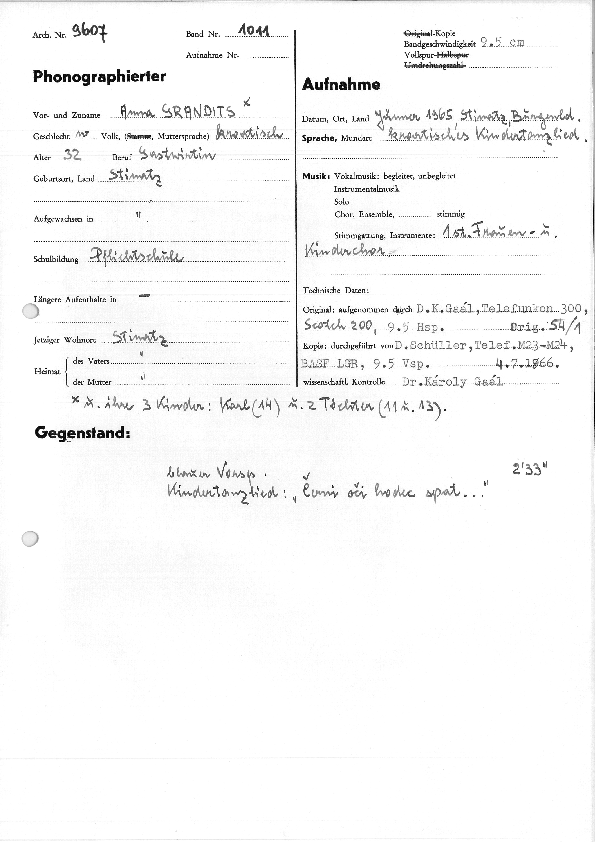 Arch. Nr. 9607
Band Nr. 1011
Aufnahme Nr.
Original-Kopie
Bandgeschwindigkeit 9.5 cm
Vollspur-Halbspur
Umdrehungszahl
Phonographierter
Vor- und Zuname Anna GRANDITS x
Geschlecht w Volk, (Stamm, Muttersprache) kroatisch
Alter 32 Beruf Gastwirtin
Geburtsort, Land Stinatz
Aufgewachsen in "
Schulbildung Pflichtschule
Längere Aufenthalte in —
Jetziger Wohnort Stinatz
Heimat
des Vaters "
der Mutter "
Aufnahme
Datum, Ort, Land Jänner 1965 Stinatz, Burgenld.
Sprache, Mundart kroatisches Kindertanzlied.
Musik: Vokalmusik: begleitet, unbegleitet
Instrumentalmusik
Solo
Chor, Ensemble, stimmig
Stimmgattung, Instrumente: 1 st. Frauen- u.
Kinderchor
Technische Daten:
Original: aufgenommen durch D.K.Gaál, Telefunken 300,
Scotch 200, 9.5 Hsp. Orig. 54/1
Kopie: durchgeführt von D.Schüller, Telef.M23-M24,
BASF LGR, 9.5 Vsp. 4.7.1966.
wissenschaftl. Kontrolle Dr.Károly Gaál
x u. ihre 3 Kinder: Karl (14) u. 2 Töchter (11 u. 13).
Gegenstand:
2'33"
Kindertanzlied: „Černi oči hodec spat..."